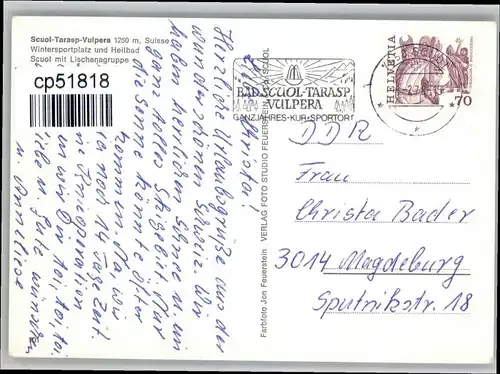 Scuol-Tarasp-Vulpera 1250 m, Suisse
Wintersportplatz und Heilbad
Scuol mit Lischanagruppe
cp51818
Liebe Christa!
Herzliche Urlaubsgrüße aus der
wunderschönen Schweiz. Wir
haben herrlichen Schnee u. im
ganz tolles Skigebiet. Nur
die Sonne könnte öfter
kommen. Na wir
noch 14 Tage Zeit.
Operation
wir Dir toi, toi, toi.
u. Gute wünschen
u. Anneliese
Farbfoto Jon Feuerstein VERLAG FOTO STUDIO FEUERSTEIN SCUOL
BAD SCUOL-TARASP
VULPERA
GANZJAHRES-KUR-SPORTORT
HELVETIA
70
DDR
Frau
Christa Bader
3014 Magdeburg
Sputnikstr. 18